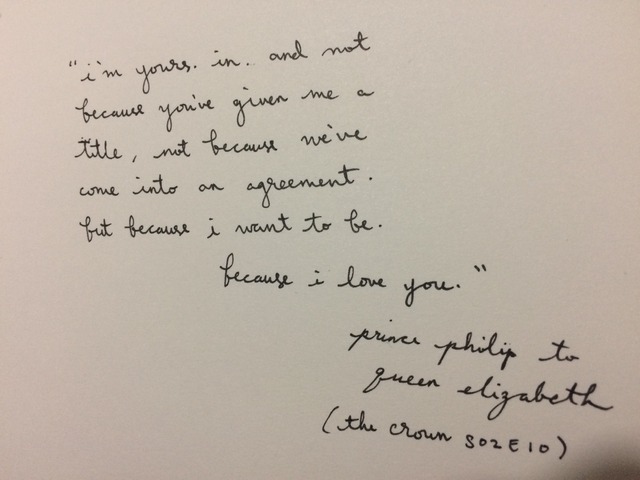 "i'm yours. in. and not
because you've given me a
title, not because we've
come into an agreement.
but because i want to be.
because i love you."
prince philip to
queen elizabeth
(the crown S02E10)